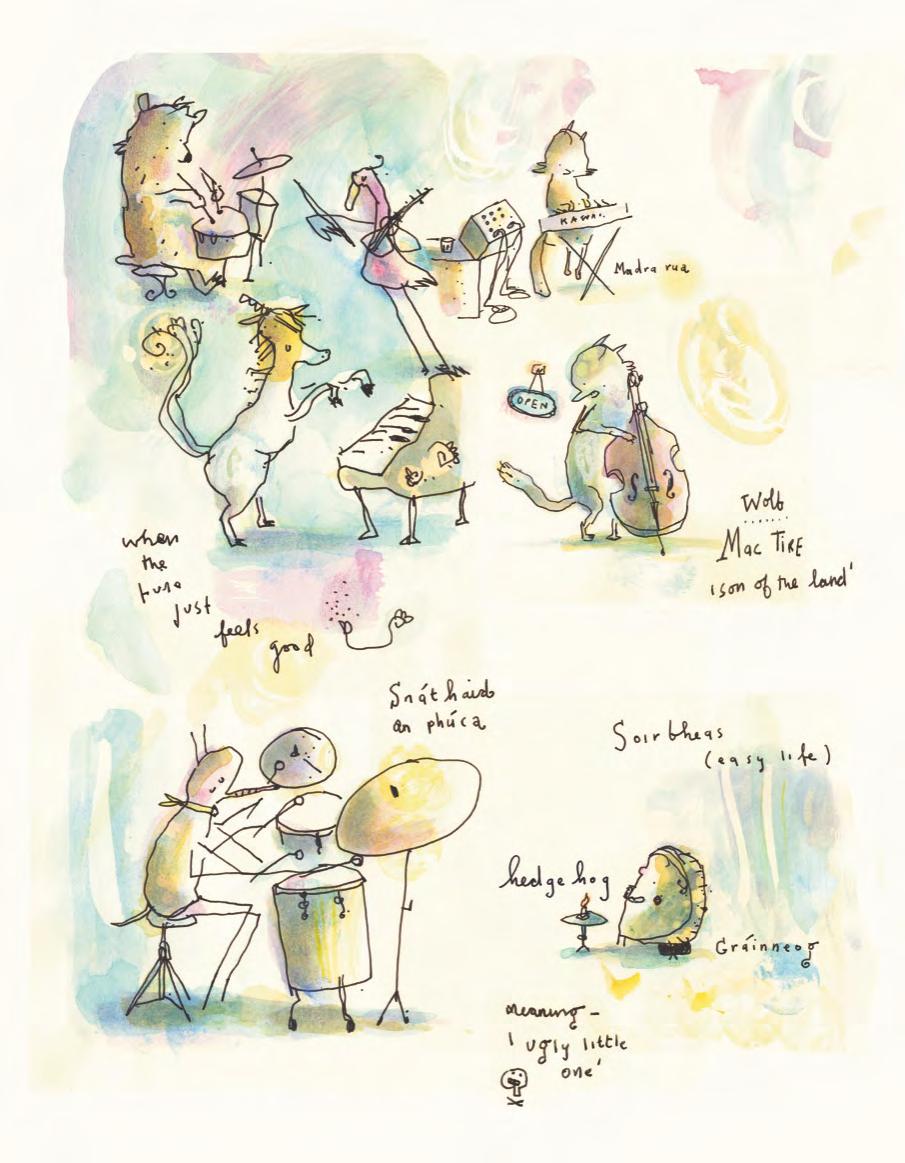 KAWAI
Madra rua
OPEN
Wolf
Mac TIRE
'son of the land'
when
the
tune
just
feels
good
Snáthaid
an phúca
Soirbheas
(easy life)
hedgehog
Gráinneog
meaning -
'ugly little
one'